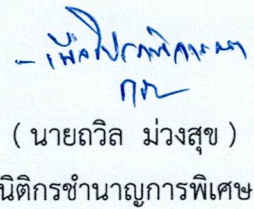 - เพื่อโปรดพิจารณา
( นายถวิล ม่วงสุข )
นิติกรชำนาญการพิเศษ